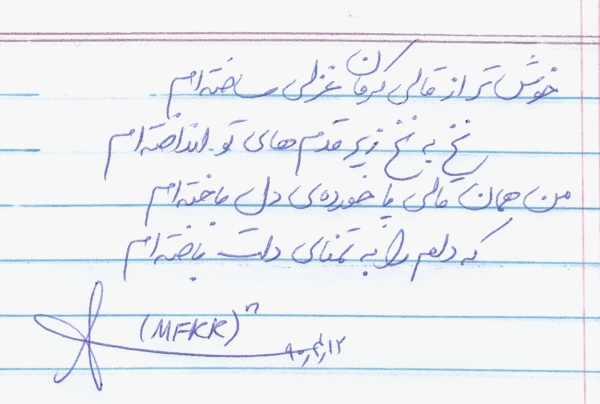 خوش تر از قالی کرمان غزلی ساخته ام
نخ به نخ زیر قدم های تو انداخته ام
من همان قالی پا خورده ی دل باخته ام
که دلم را به تمنای دلت باخته ام
(MFKK)ⁿ
۸۰٫۴٫۱۲